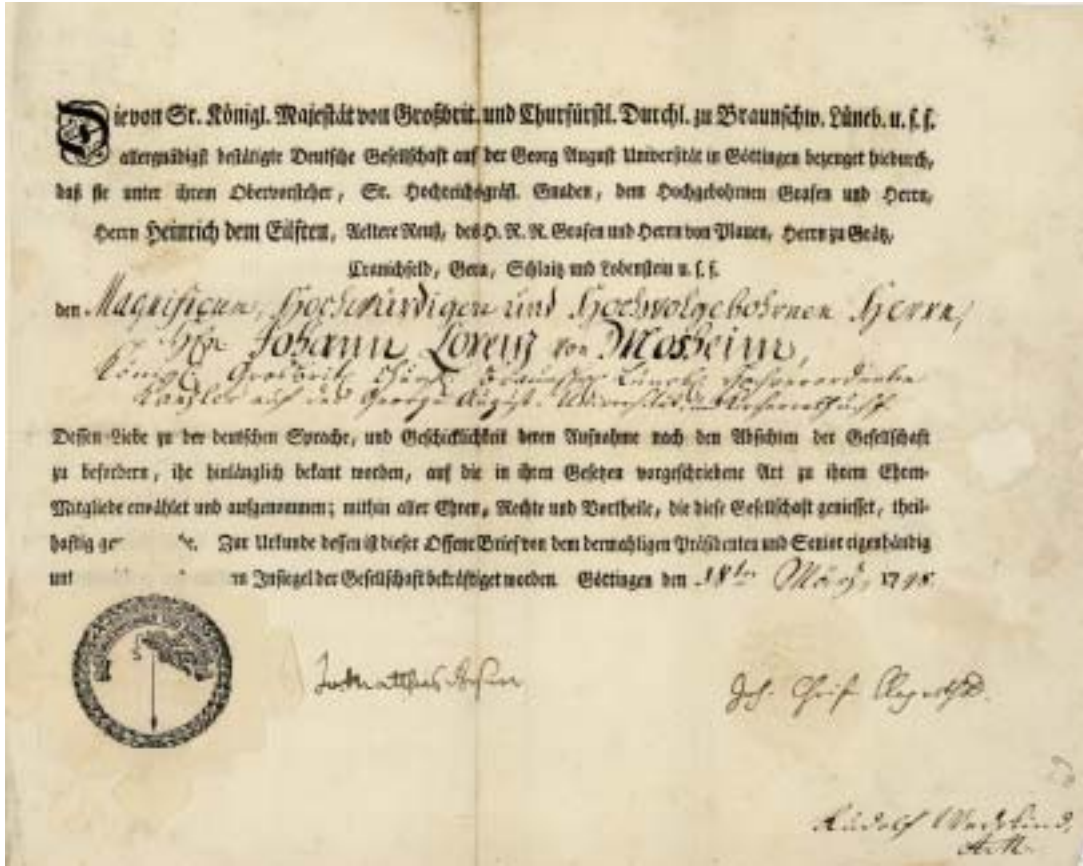 Die von Sr. Königl. Majestät von Großbrit. und Churfürstl. Durchl. zu Braunschw. Lüneb. u. s. f.
allergnädigst bestätigte Deutsche Gesellschaft auf der Georg August Universität in Göttingen bezeuget hiedurch,
daß sie unter ihrem Obervorsteher, Sr. Hochreichsgräfl. Gnaden, dem Hochgebohrnen Grafen und Herrn,
Herrn Heinrich dem Eilften, Aeltere Reuß, des H. R. R. Grafen und Herrn von Plauen, Herrn zu Grätz,
Cranichfeld, Gera, Schlaitz und Lobenstein u. s. f.
den Magnificum, Hochwürdigen und Hochwolgebohrnen Herrn,
Johann Lorenz von Mosheim,
Königl. Grosbrit. Lüneb.
Kanzler auf der Georg August Universität
Dessen Liebe zu der deutschen Sprache, und Geschicklichkeit deren Aufnahme nach den Absichten der Gesellschaft
zu befordern, ihr hinlänglich bekant worden, auf die in ihren Gesetzen vorgeschriebene Art zu ihrem Ehren-
Mitgliede erwählet und aufgenommen; mithin aller Ehren, Rechte und Vortheile, die diese Gesellschaft geniesset, theil-
haftig Zur Urkunde dessen ist dieser Offene Brief von dem dermahligen Präsidenten und Senior eigenhändig
unt Insiegel der Gesellschaft bekräftiget worden. Göttingen den 18ten März, 1748.
Joh.
Rudolf Wedekind,